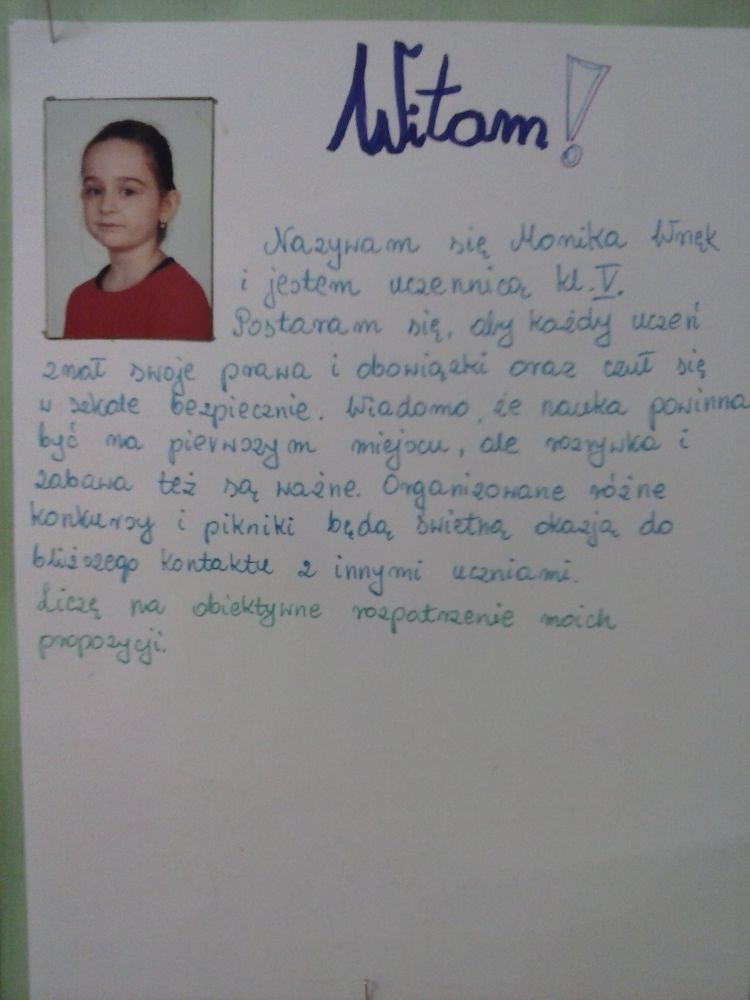 Witam!
Nazywam się Monika Wnęk
i jestem uczennicą kl. V.
Postaram się, aby każdy uczeń
znał swoje prawa i obowiązki oraz czuł się
w szkole bezpiecznie. Wiadomo, że nauka powinna
być na pierwszym miejscu, ale rozrywka i
zabawa też są ważne. Organizowane różne
konkursy i pikniki będą świetną okazją do
bliższego kontaktu z innymi uczniami.
Liczę na obiektywne rozpatrzenie moich
propozycji.